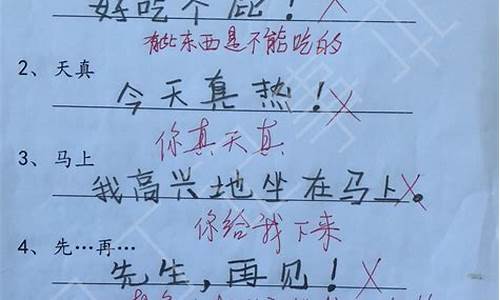 好吃个屁！ ×
有些东西是不能吃的
2、天真
今天真热！ ×
你真天真
3、马上
我高兴地坐在马上。 ×
你给我下来
4、先…再…
先生，再见！ ×